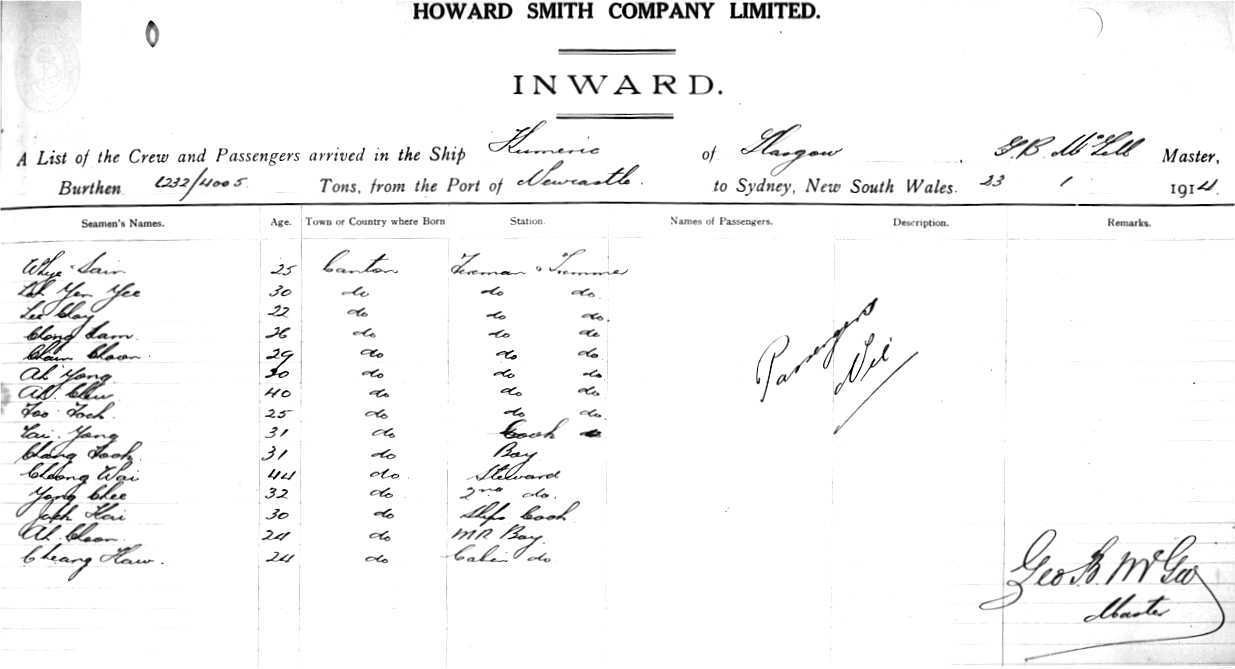 HOWARD SMITH COMPANY LIMITED.
INWARD.
A List of the Crew and Passengers arrived in the Ship Kumeric of Glasgow G. B. McGill Master,
Burthen 6232/4005 Tons, from the Port of Newcastle. to Sydney, New South Wales. 23 1 1914
Seamen's Names. Age. Town or Country where Born Station. Names of Passengers. Description. Remarks.
Whye Sain 25 Canton Fireman & Trimmer
Yen Yee 30 do do do.
Lee Choy 22 do do do.
Chong Sam 26 do do do
Chain Choon. 29 do do do.
Ah Yong 30 do do do
Ah. Chew 40 do do do
Foo Foch. 25 do do do.
Tai Yong 31 do Cook
Chang Fook. 31 do Boy
Cheong Wai 44 do. Steward
Yong Chee 32 do 2nd do.
Kai 30 do Ships Cook
Ah. Choon. 24 do MR Boy.
Cheang Haw. 24 do Cabin do
Passengers
Nil
Geo B. McGill
Master